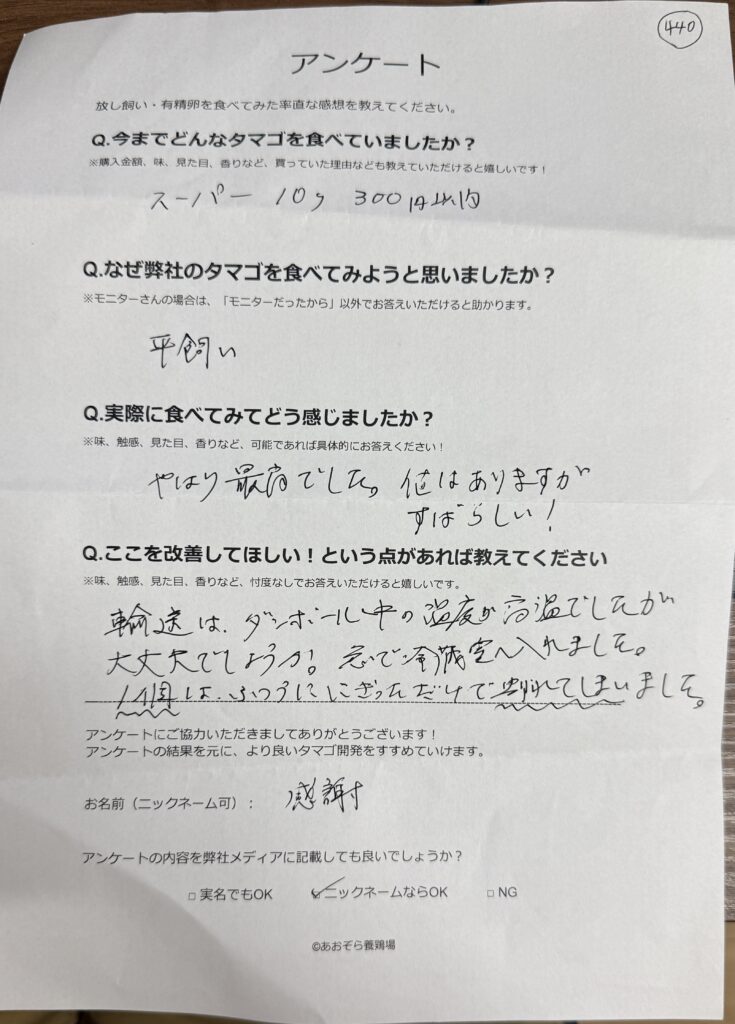 440
アンケート
放し飼い・有精卵を食べてみた率直な感想を教えてください。
Q.今までどんなタマゴを食べていましたか？
※購入金額、味、見た目、香りなど、買っていた理由なども教えていただけると嬉しいです！
スーパー 10ヶ 300円以内
Q.なぜ弊社のタマゴを食べてみようと思いましたか？
※モニターさんの場合は、「モニターだったから」以外でお答えいただけると助かります。
平飼い
Q.実際に食べてみてどう感じましたか？
※味、触感、見た目、香りなど、可能であれば具体的にお答えください！
やはり最高でした。値はありますが
すばらしい！
Q.ここを改善してほしい！という点があれば教えてください
※味、触感、見た目、香りなど、忖度なしでお答えいただけると嬉しいです。
輸送は、ダンボール中の温度が高温でしたが
大丈夫でしょうか！急いで冷蔵室へ入れました。
1個は、ふつうににぎっただけで割れてしまいました。
アンケートにご協力いただきましてありがとうございます！
アンケートの結果を元に、より良いタマゴ開発をすすめていけます。
お名前（ニックネーム可）： 感謝
アンケートの内容を弊社メディアに記載しても良いでしょうか？
□ 実名でもOK ☑ ニックネームならOK □ NG
©あおぞら養鶏場